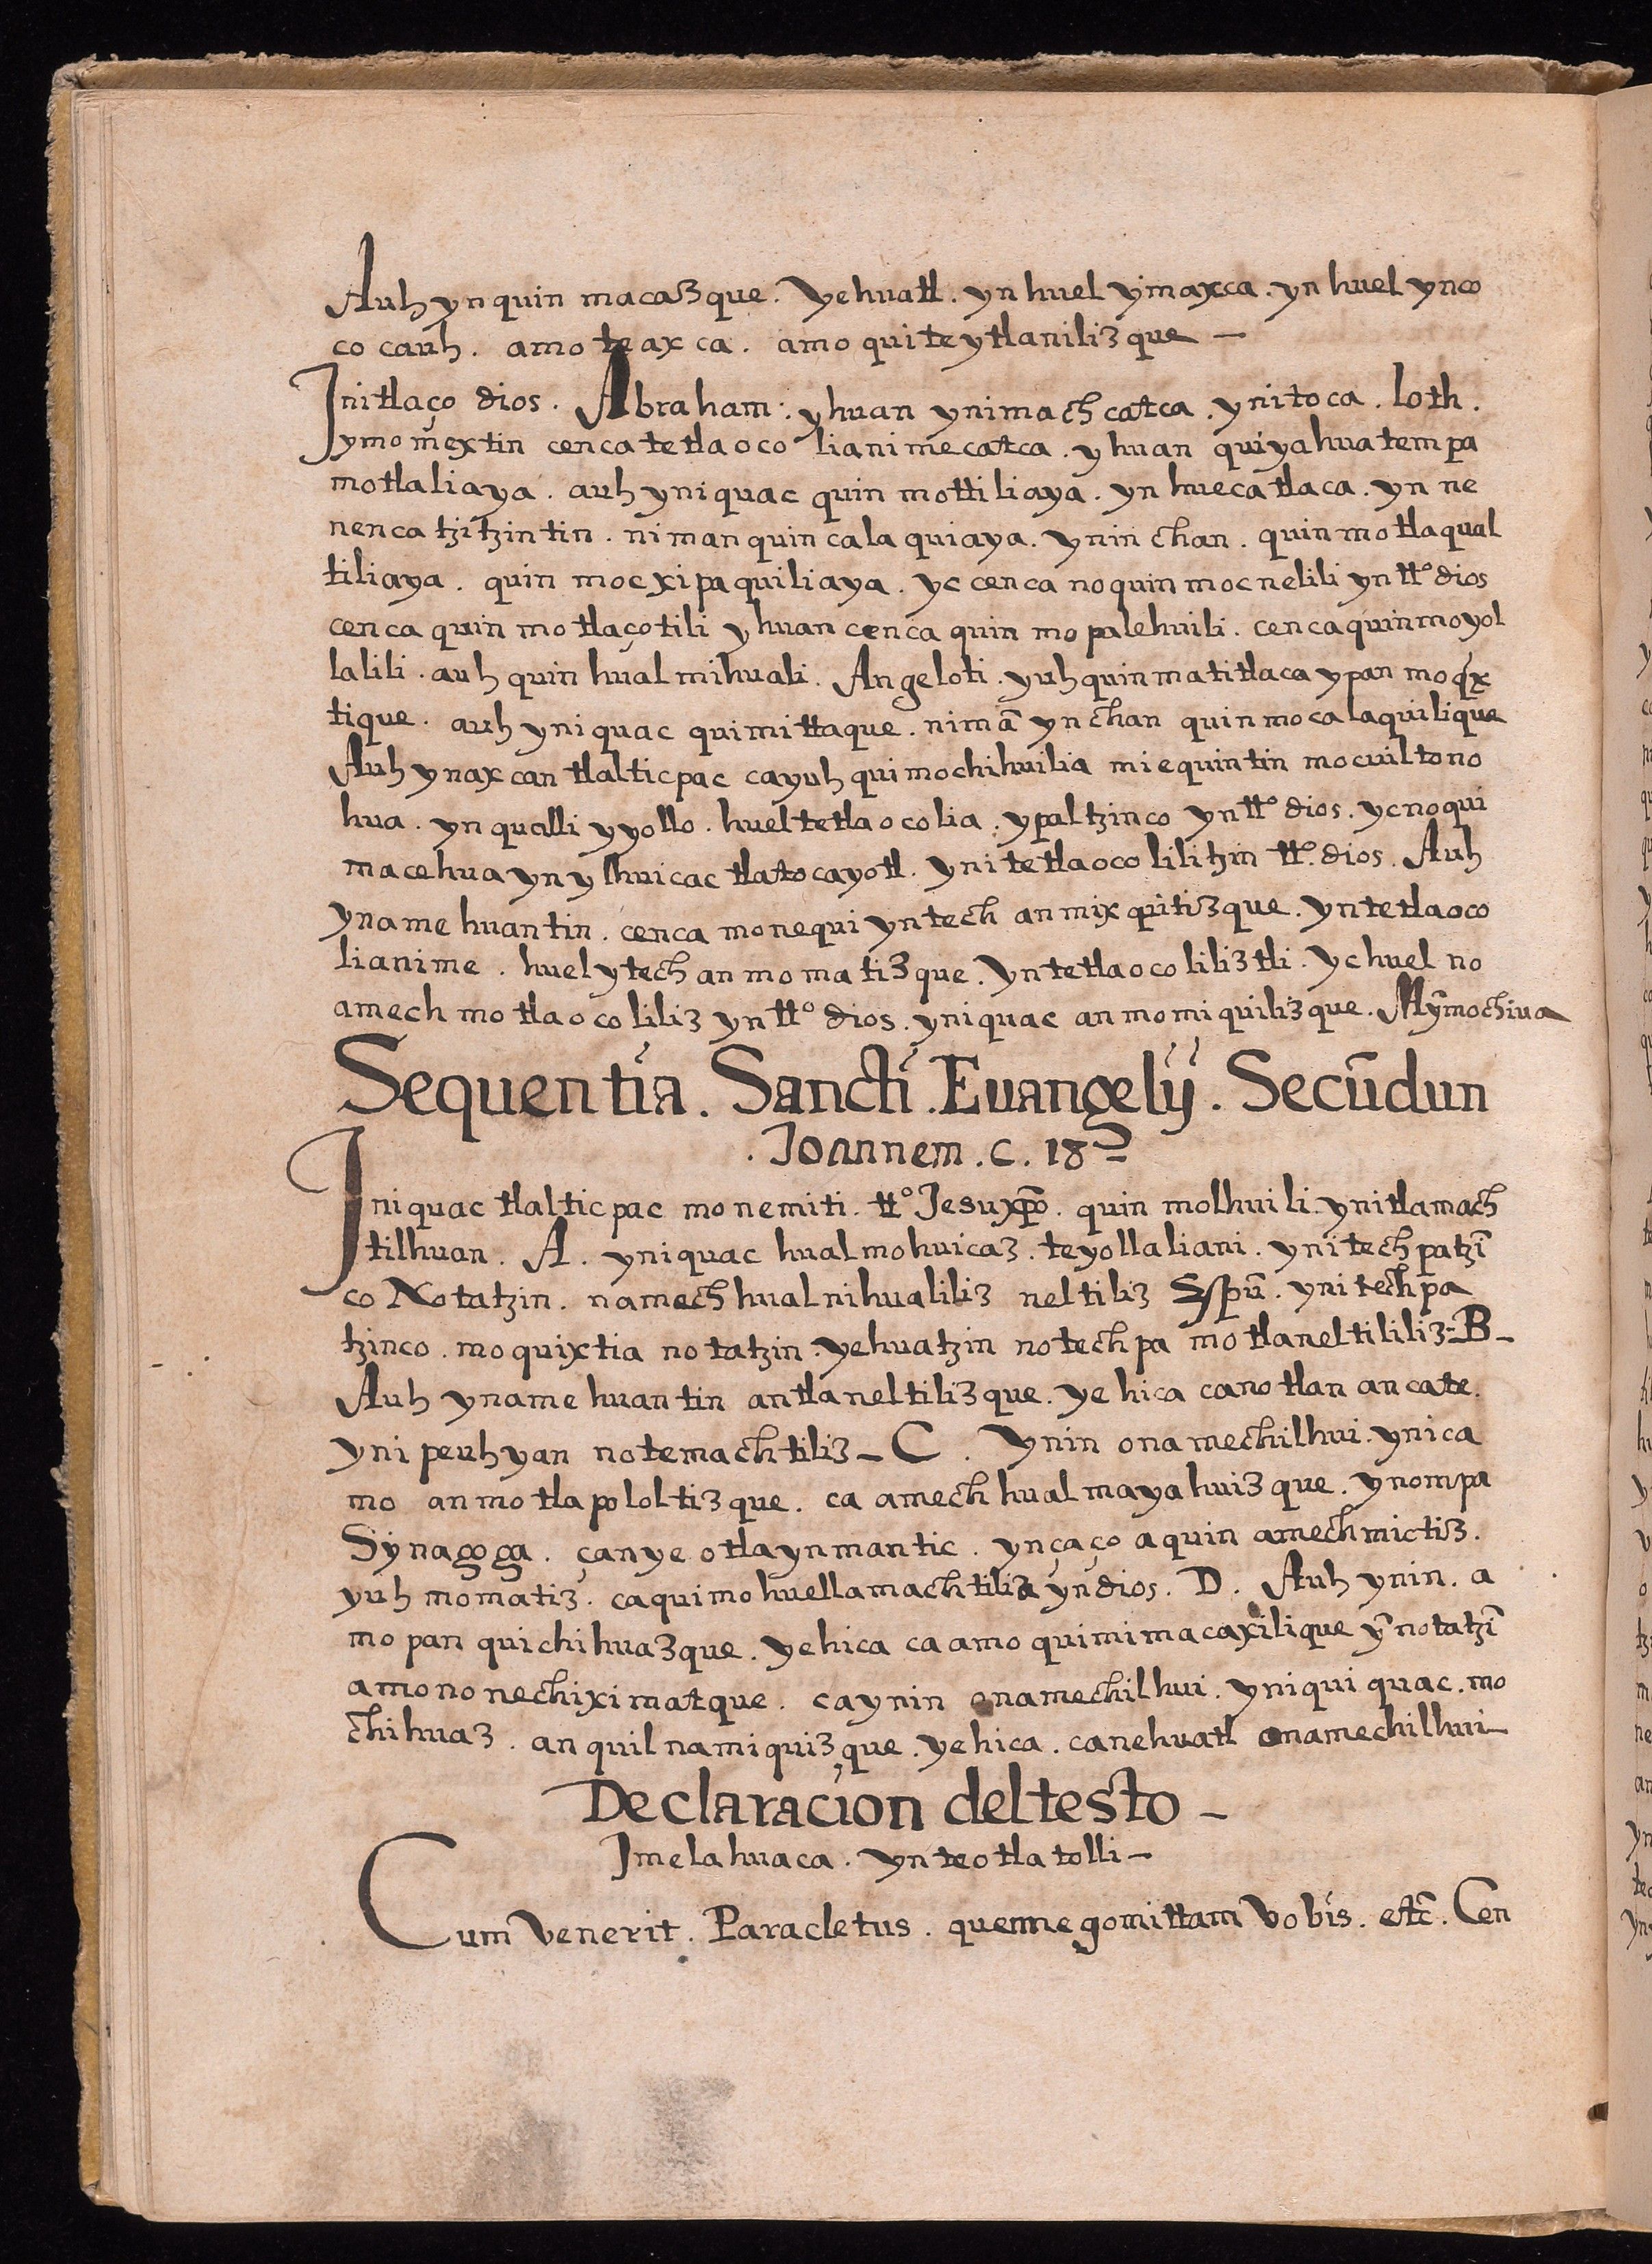 Auh yn quin macazque. Yehuatl. yn huel ymaxca. yn huel ynco
co cauh. amo te ax ca. amo qui te ytlanilizque —
Initlaço dios. Abraham. yhuan ynimach catca. ynitoca. loth.
ymomextin cenca tetlaoco lianime catca. yhuan quiyahuatempa
motlaliaya. auh yniquac quin mottiliaya. yn hueca tlaca. yn ne
nenca tzitzintin. niman quin cala quiaya. ynin chan. quin motlaqual
tiliaya. quin mocxipaquiliaya. yc cenca no quin mocnelili yn tto dios
cenca quin motlaçotili yhuan cenca quin mopalehuili. cenca quin moyol
lalili. auh quin hual mihuali. Angeloti. yuhquin matitlaca ypan moqx
tique. auh yniquac quimittaque. nimā ynchan quin mocalaquilique
Auh ynaxcan tlalticpac cayuh quimochihuilia miequintin mocuiltono
hua. yn qualli yyollo. huel tetlaocolia. ypaltzinco yn tto dios. yc no qui
macehua yn ylhuicac tlatocayotl. yni tetlaocolilitzin tto. dios. Auh
yname huantin. cenca monequi yntech anmixquitizque. yntetlaoco
lianime. huel ytech anmomatizque. Yntetlaocoliliztli. yc huel no
amech motlaocoliliz yn tto dios. yniquac anmomiquilizque. Mȳmochiua
Sequentia. Sancti. Euangelij. Secūdun
. Ioannem. c. 18
Iniquac tlalticpac monemiti. tto Jesuxpo. quin molhuili. ynitlamach
tilhuan. A. yniquac hualmohuicaz. teyollaliani. ynitechpatzī
co Notatzin. namech hualnihualiliz neltiliz Spū. ynitechpa
tzinco. moquixtia notatzin. yehuatzin notechpa motlaneltililiz = B -
Auh yname huantin antlaneltilizque. yehica canotlan ancate.
yni peuhyan notemachtiliz — C. Ynin onamechilhui. ynica
mo anmotlapololtizque. ca amech hualmayahuizque. ynompa
Synagoga. çanye otlaynmantic. ynçaço aquin amechmictiz.
yuh momatiz. caquimohuellamachtilia yndios. D. Auh ynin. a
mo pan quichihuazque. yehica ca amo quimimacaxilique ȳnotatzī
amono nechiximatque. caynin onamechilhui. yniqui quac. mo
chihuaz. anquilnamiquizque. yehica. canehuatl onamechilhui
Declaracion del testo —
Imelahuaca. ynteotlatolli —
Cum Venerit. Paracletus. quem egomittam Vobis. etc̄. Cen